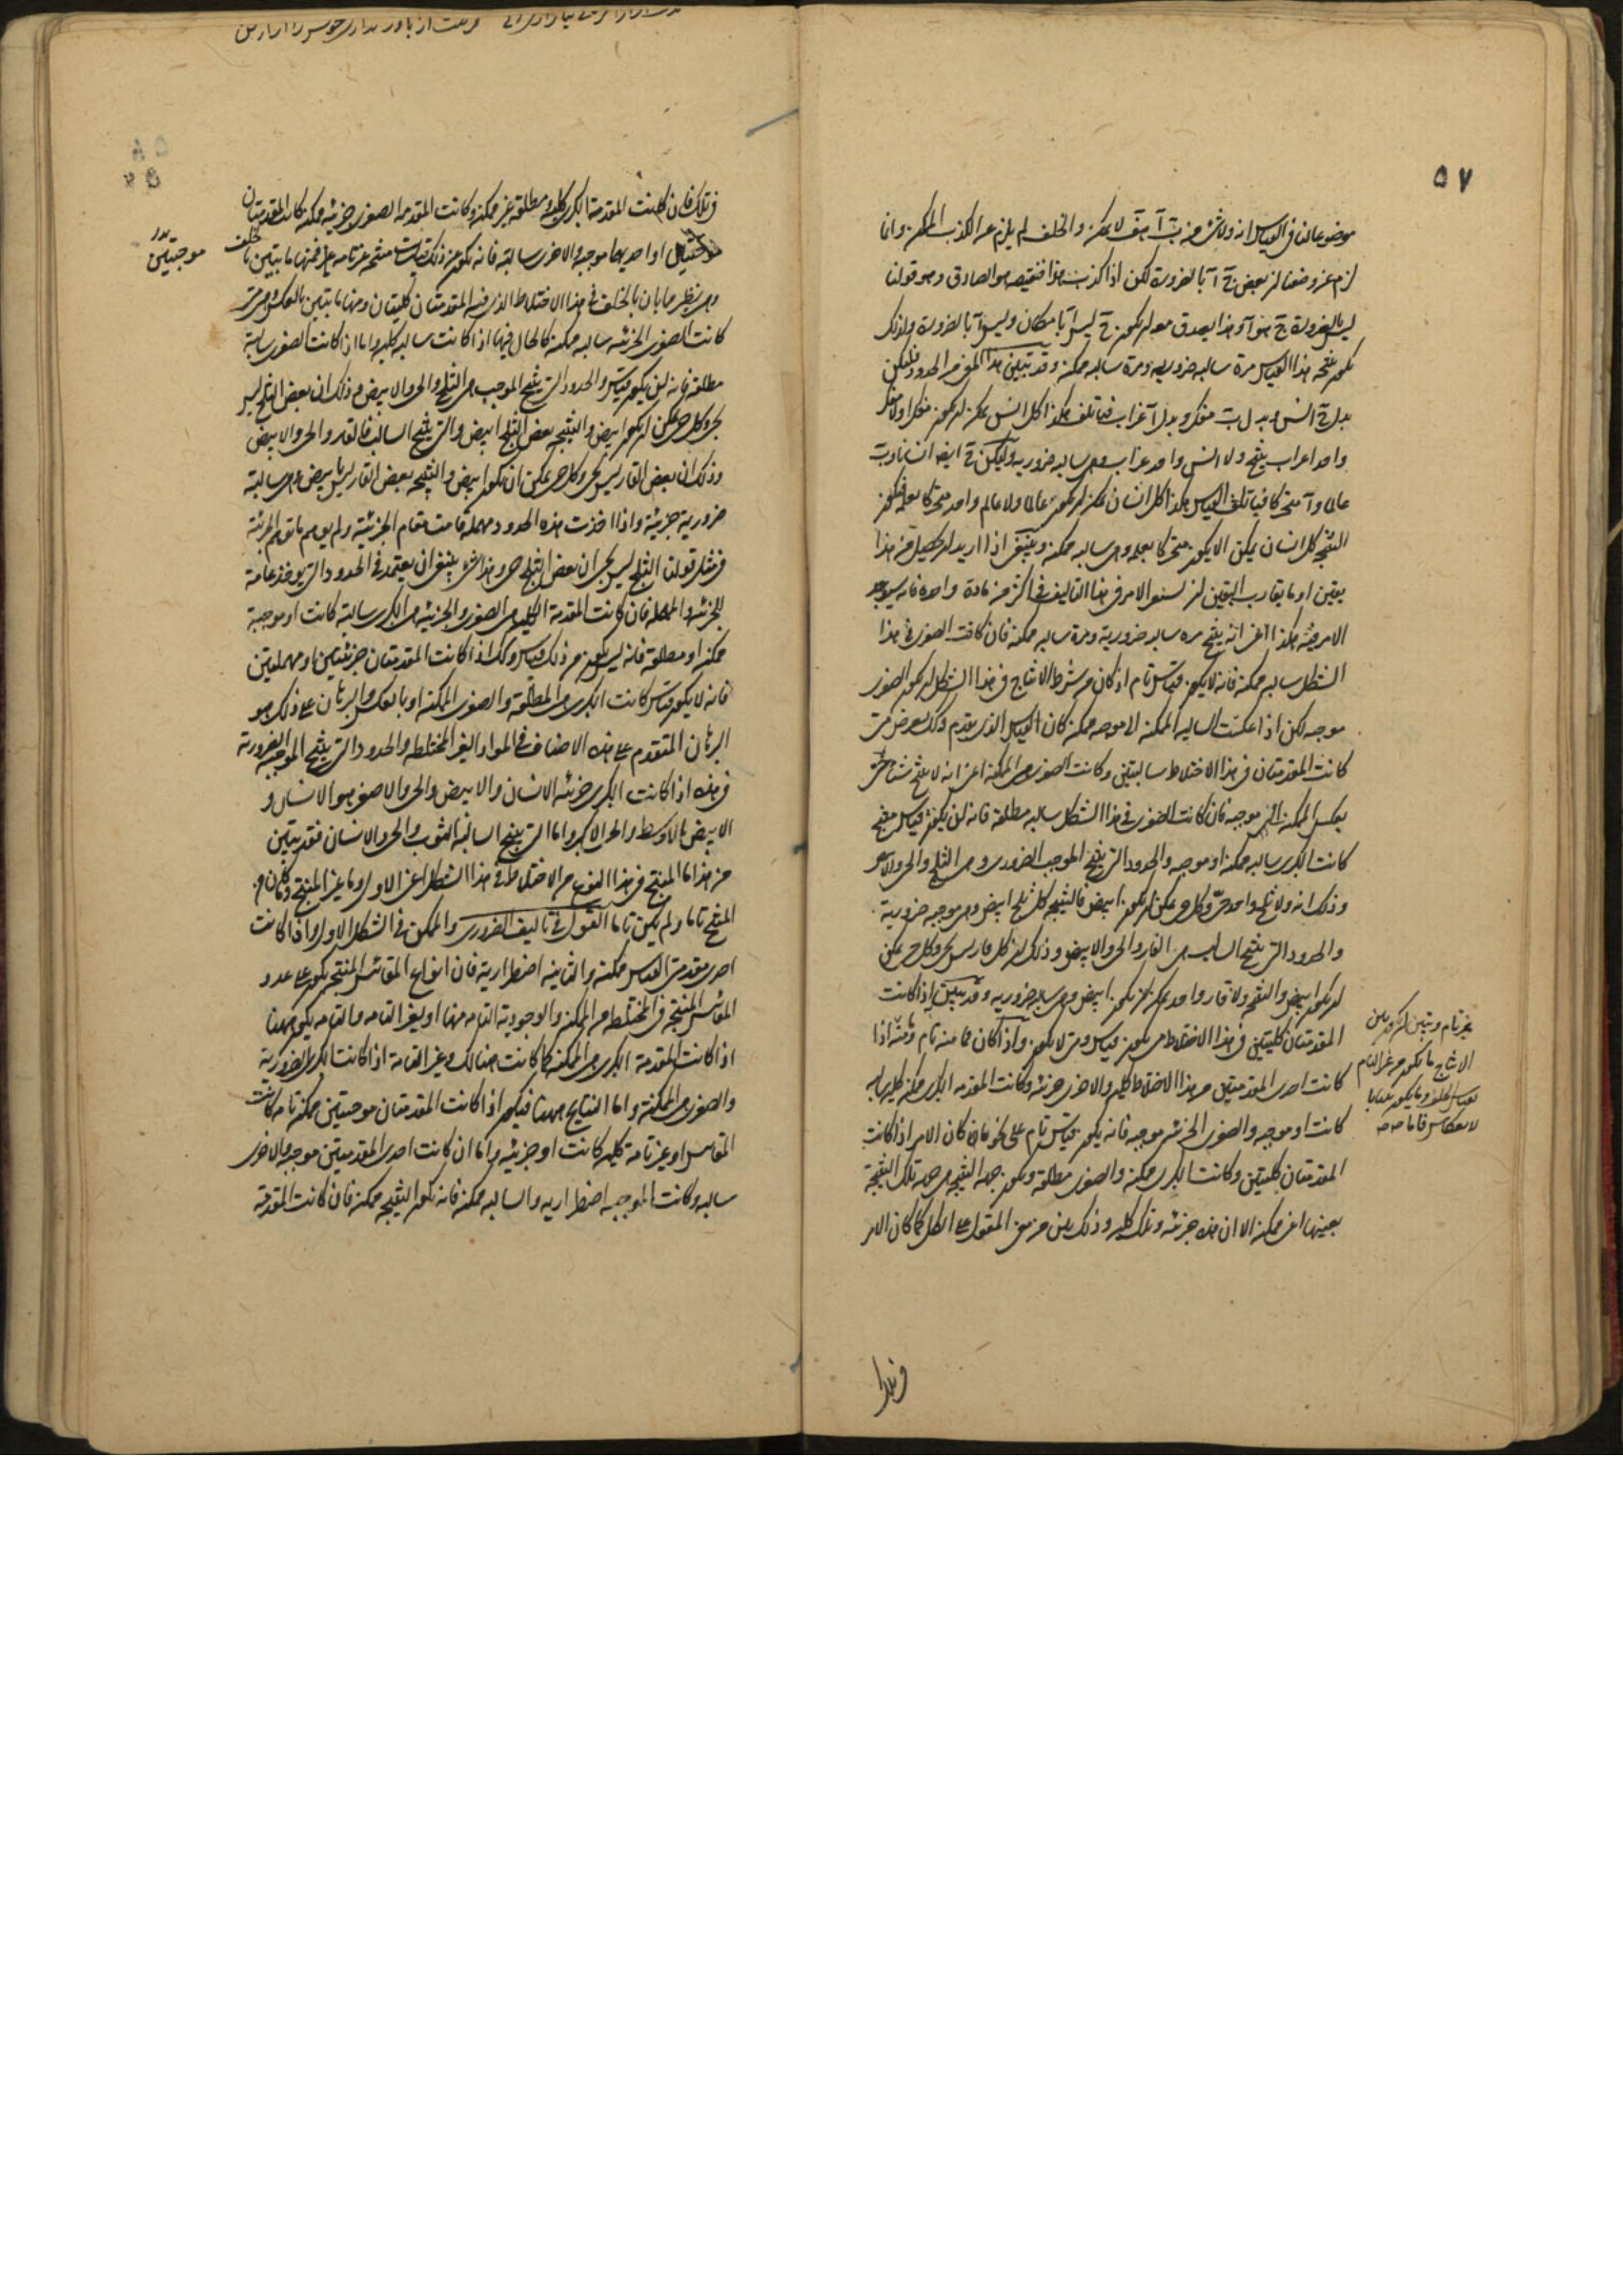 ٥٧
موضوعا لنا فى القياس انه ولا شئ من بَ آ متفـ لا يمكن والخلف لم يلزم عن الكذب الممكن وانما
لزم عن وضعنا ان بعض جَ آ بالضرورة لكن اذا كذب هذا فنقيضه هو الصادق وهو قولنا
ليس بالضرورة جَ هو آ وهذا يصدق معه ان يكون جَ ليس آ بامكان وليس آ بالضرورة ولذلك
تكون نتيجة هذا القياس مرة سالبه ضروريه ومرة سالبه ممكنه وقد تبين هذا المعنى من الحدود فليكن
بدل جَ انسان وبدل بَ مفكر وبدل آ غراب فيأتلف هكذا كل انسان يمكن ان يكون مفكرا ولا مفكر
واحد غراب ينتج ولا انسان واحد غراب وهى سالبه ضروريه وليكن جَ ايضا انسانا وبَ
عالما وآ متحركا فيأتلف القياس هكذا كل انسان يمكن ان يكون عالما ولا عالم واحد متحركا بعلمه فيكون
النتيجه كل انسان يمكن الا يكون متحركا بعلمه وهى سالبه ممكنه وينبغى اذا اريد ان يحصل من هذا
يقين او ما يقارب اليقين ان يستقر الامر فى هذا التاليف فى اكثر من مادة واحدة فانه سيوجد
الامر فيه هكذا اعنى انه ينتج مره سالبه ضرورية ومرة سالبه ممكنه فان كانت الصغرى فى هذا
الشكل سالبه ممكنه فانه لا يكون قياس تام اذ كان من شرط الانتاج فى هذا الشكل ان يكون الصغرى
موجبه لكن اذا عكست السالبه الممكنه الى موجبه ممكنه كان القياس الذى تقدم وكذلك يعرض متى
كانت المقدمتان فى هذا الاختلاط سالبتين وكانت الصغرى هى الممكنه اعنى انه لا ينتج شيئا حتى
يعكس الممكنه الى موجبه فان كانت الصغرى فى هذا الشكل سالبه مطلقه فانه لن يكون قياس منتج
كانت الكبرى سالبه ممكنه او موجبه والحدود التى ينتج الموجب الضرورى هى الثلج والحى والابيض
وذلك انه ولا ثلج واحد حى وكل حى يمكن ان يكون ابيض فالنتيجه كل ثلج ابيض وهى موجبه ضروريه
والحدود التى ينتج السالب هى القار والحى والابيض وذلك ان كل قار ليس بحى وكل حى يمكن
ان يكون ابيض والنتيجه ولا قار واحد يمكن ان يكون ابيض وهى سالبه ضروريه وقد تبين انه اذا كانت
المقدمتان كليتين فى هذا الاختلاط متى يكون قياس ومتى لا يكون واذا كان فما منه تام ومنه اذا
كانت احدى المقدمتين من هذا الاختلاط كليه والاخرى جزئيه وكانت المقدمه الكبرى ممكنه كليه سالبه
كانت او موجبه والصغرى الجزئيه موجبه فانه يكون قياس تام على نحو ما كان الامر اذا كانت
المقدمتان كليتين وكانت الكبرى ممكنه والصغرى مطلقه ويكون جهة النتيجه هى جهة تلك النتيجة
بعينها اعنى ممكنه الا ان هذه جزئيه وتلك كليه وذلك بين من معنى المقول على الكل كما كان الامر
غير تام
الانتاج ما يكون من غير التام
فى تلك فان كانت المقدمة الكبرى كليه مطلقه غير ممكنه وكانت المقدمه الصغرى جزئيه ممكنه كانت المقدمتان
او احديهما موجبه والاخرى سالبة فانه يكون عن ذلك قياسات منتجه غير تامه فمنها ما يتبين بالخلف
موجبتين
بدر
وهى نظير ما بان بالخلف فى هذا الاختلاط الذى فيه المقدمتان كليتان ومنها ما يتبين بالعكس وهى متى
كانت الصغرى الجزئيه سالبه ممكنه كالحال فيها اذا كانت سالبه كليه واما اذا كانت الصغرى سالبة
مطلقه فانه لن يكون قياس والحدود التى ينتج الموجب هى الثلج والحى والابيض وذلك ان بعض الثلج ليس
بحى وكل حى يمكن ان يكون ابيض والنتيجه بعض الثلج ابيض والتى ينتج السالب فالقار والحى والابيض
وذلك ان بعض القار ليس بحى وكل حى يمكن ان يكون ابيض والنتيجه بعض القار ليس بابيض وهى سالبة
ضرورية جزئية واذا اخذت هذه الحدود مهملة قامت مقام الجزئية ولم يوهم ما توهم الجزئية
فى مثل قولنا الثلج ليس بحى ان بعض الثلج حى وهذا شئ ينبغى ان يعتمد فى الحدود التى يوخذ عامة
للجزئيه والمهمله فان كانت المقدمة الكليه هى الصغرى والجزئيه هى الكبرى سالبة كانت او موجبة
ممكنه او مطلقه فانه ليس يكون من ذلك قياس وكذلك اذا كانت المقدمتان جزئيتين او مهملتين
فانه لا يكون قياس كانت الكبرى هى المطلقة والصغرى الممكنه او بالعكس والبرهان على ذلك هو
البرهان المتقدم على هذه الاصناف فى المواد الغير المختلطه والحدود التى ينتج الموجبه الضرورية
فى هذه اذا كانت الكبرى جزئيه الانسان والابيض والحى والاصغر هو الانسان و
الابيض الاوسط والحى الاكبر واما التى ينتج السالبه الثوب والحى والانسان فقد تبين
من هذا ما المنتج فى هذا النوع من الاختلاط فى هذا الشكل اعنى الاول وما غير المنتج وكم من
المنتج تاما ولم يكن تاما القول فى تاليف الضرورى والممكن فى الشكل الاول واذا كانت
احدى مقدمتى القياس ممكنه والثانيه اضطرارية فان انواع المقائيس المنتجه يكون على عدد
المقائيس المنتجة فى المختلطه من الممكنه والوجودية التامه منها او بغير التامه والتامه يكون ههنا
اذا كانت المقدمة الكبرى هى الممكنه كما كانت هنالك وغير التامة اذا كانت الكبرى الضرورية
والصغرى الممكنه واما النتايج ههنا فيكون اذا كانت المقدمتان موجبتين ممكنه تامه كانت
المقائيس او غير تامة كليه كانت او جزئيه واما ان كانت احدى المقدمتين موجبه والاخرى
سالبه وكانت الموجبه اضطراريه والسالبه ممكنه فانه تكون النتيجه ممكنه فان كانت المقدمة